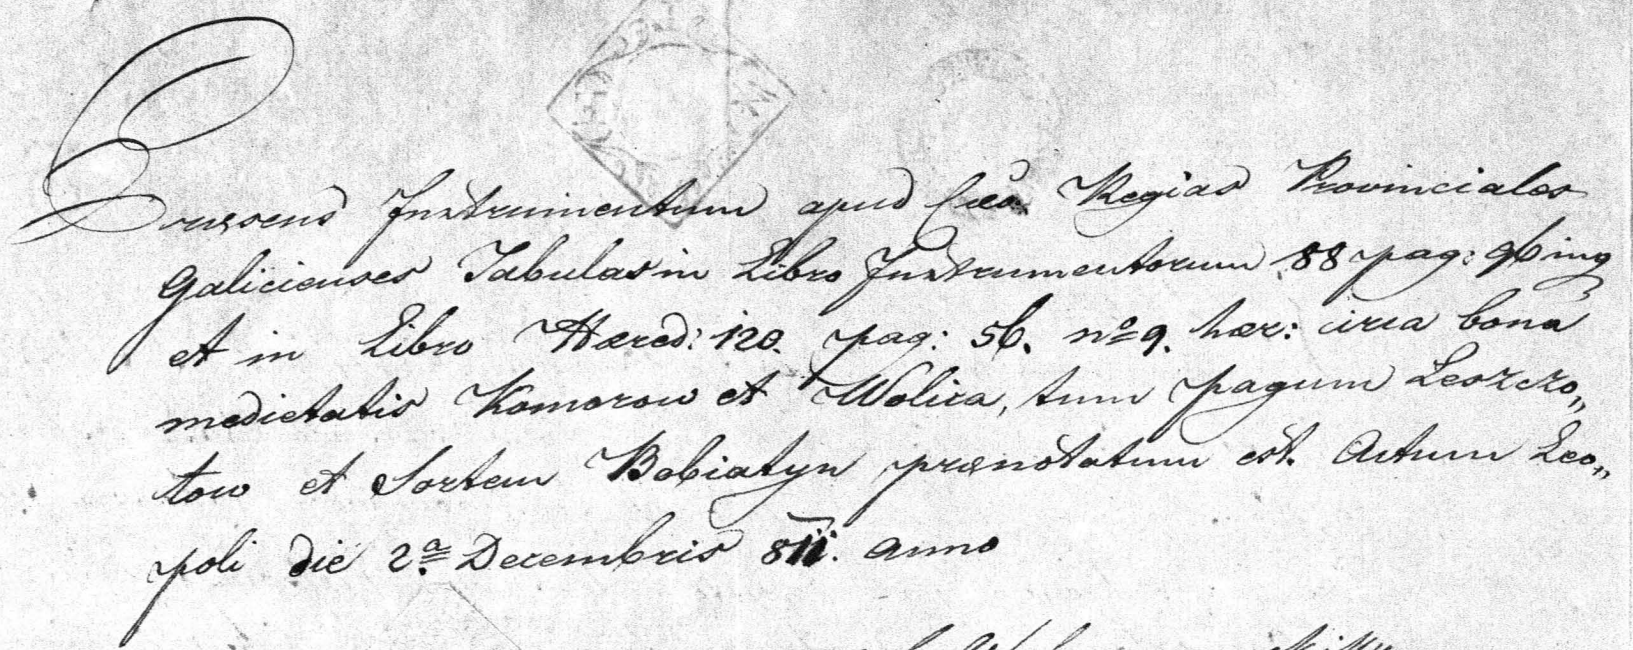 Præsens Instrumentum apud Cæs. Regias Provinciales
Galicienses Tabulas in Libro Instrumentorum 88 pag: 96 ing
et in Libro Hæred: 120. pag: 56. nº 9. hær: circa bona
medietatis Komorow et Wolica, tum pagum Leszczo„
tow et Sortem Bobiatyn prænotatum est. Actum Leo„
poli die 2ª Decembris 811. anno